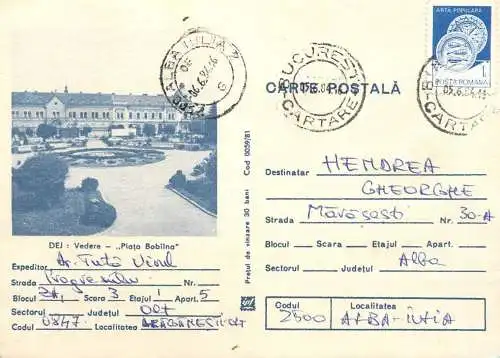 ALBA IULIA 2
06.6.84-6
BUCUREȘTI
CARTARE
ARTĂ POPULARĂ
POȘTA ROMÂNĂ
05.6.84
CARTARE
CARTE POȘTALĂ
DEJ : Vedere — „Piața Bobîlna"
Expeditor
Strada Nr.
Blocul 2A, Scara 3 Etajul 1 Apart. 5
Sectorul Județul OLT
Codul 0847 Localitatea DRĂGĂNEȘTI-OLT
Prețul de vînzare 30 bani Cod 0059/81
Destinatar HENDREA
GHEORGHE
Strada Mărășești Nr. 30-A
Blocul Scara Etajul Apart.
Sectorul Județul Alba
Codul Localitatea
2500 ALBA-IULIA